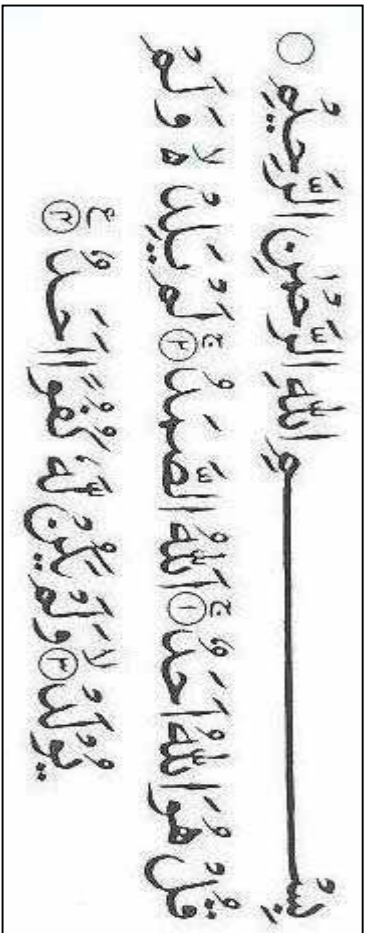 بِسْـــــــــــمِ اللهِ الرَّحْمٰنِ الرَّحِيْمِ ○
قُلْ هُوَ اللهُ اَحَدٌ ۚ (١) اَللهُ الصَّمَدُ ۚ (٢) لَمْ يَلِدْ ە ۙ وَلَمْ
يُوْلَدْ ۙ (٣) وَلَمْ يَكُنْ لَّهٗ كُفُوًا اَحَدٌ ع